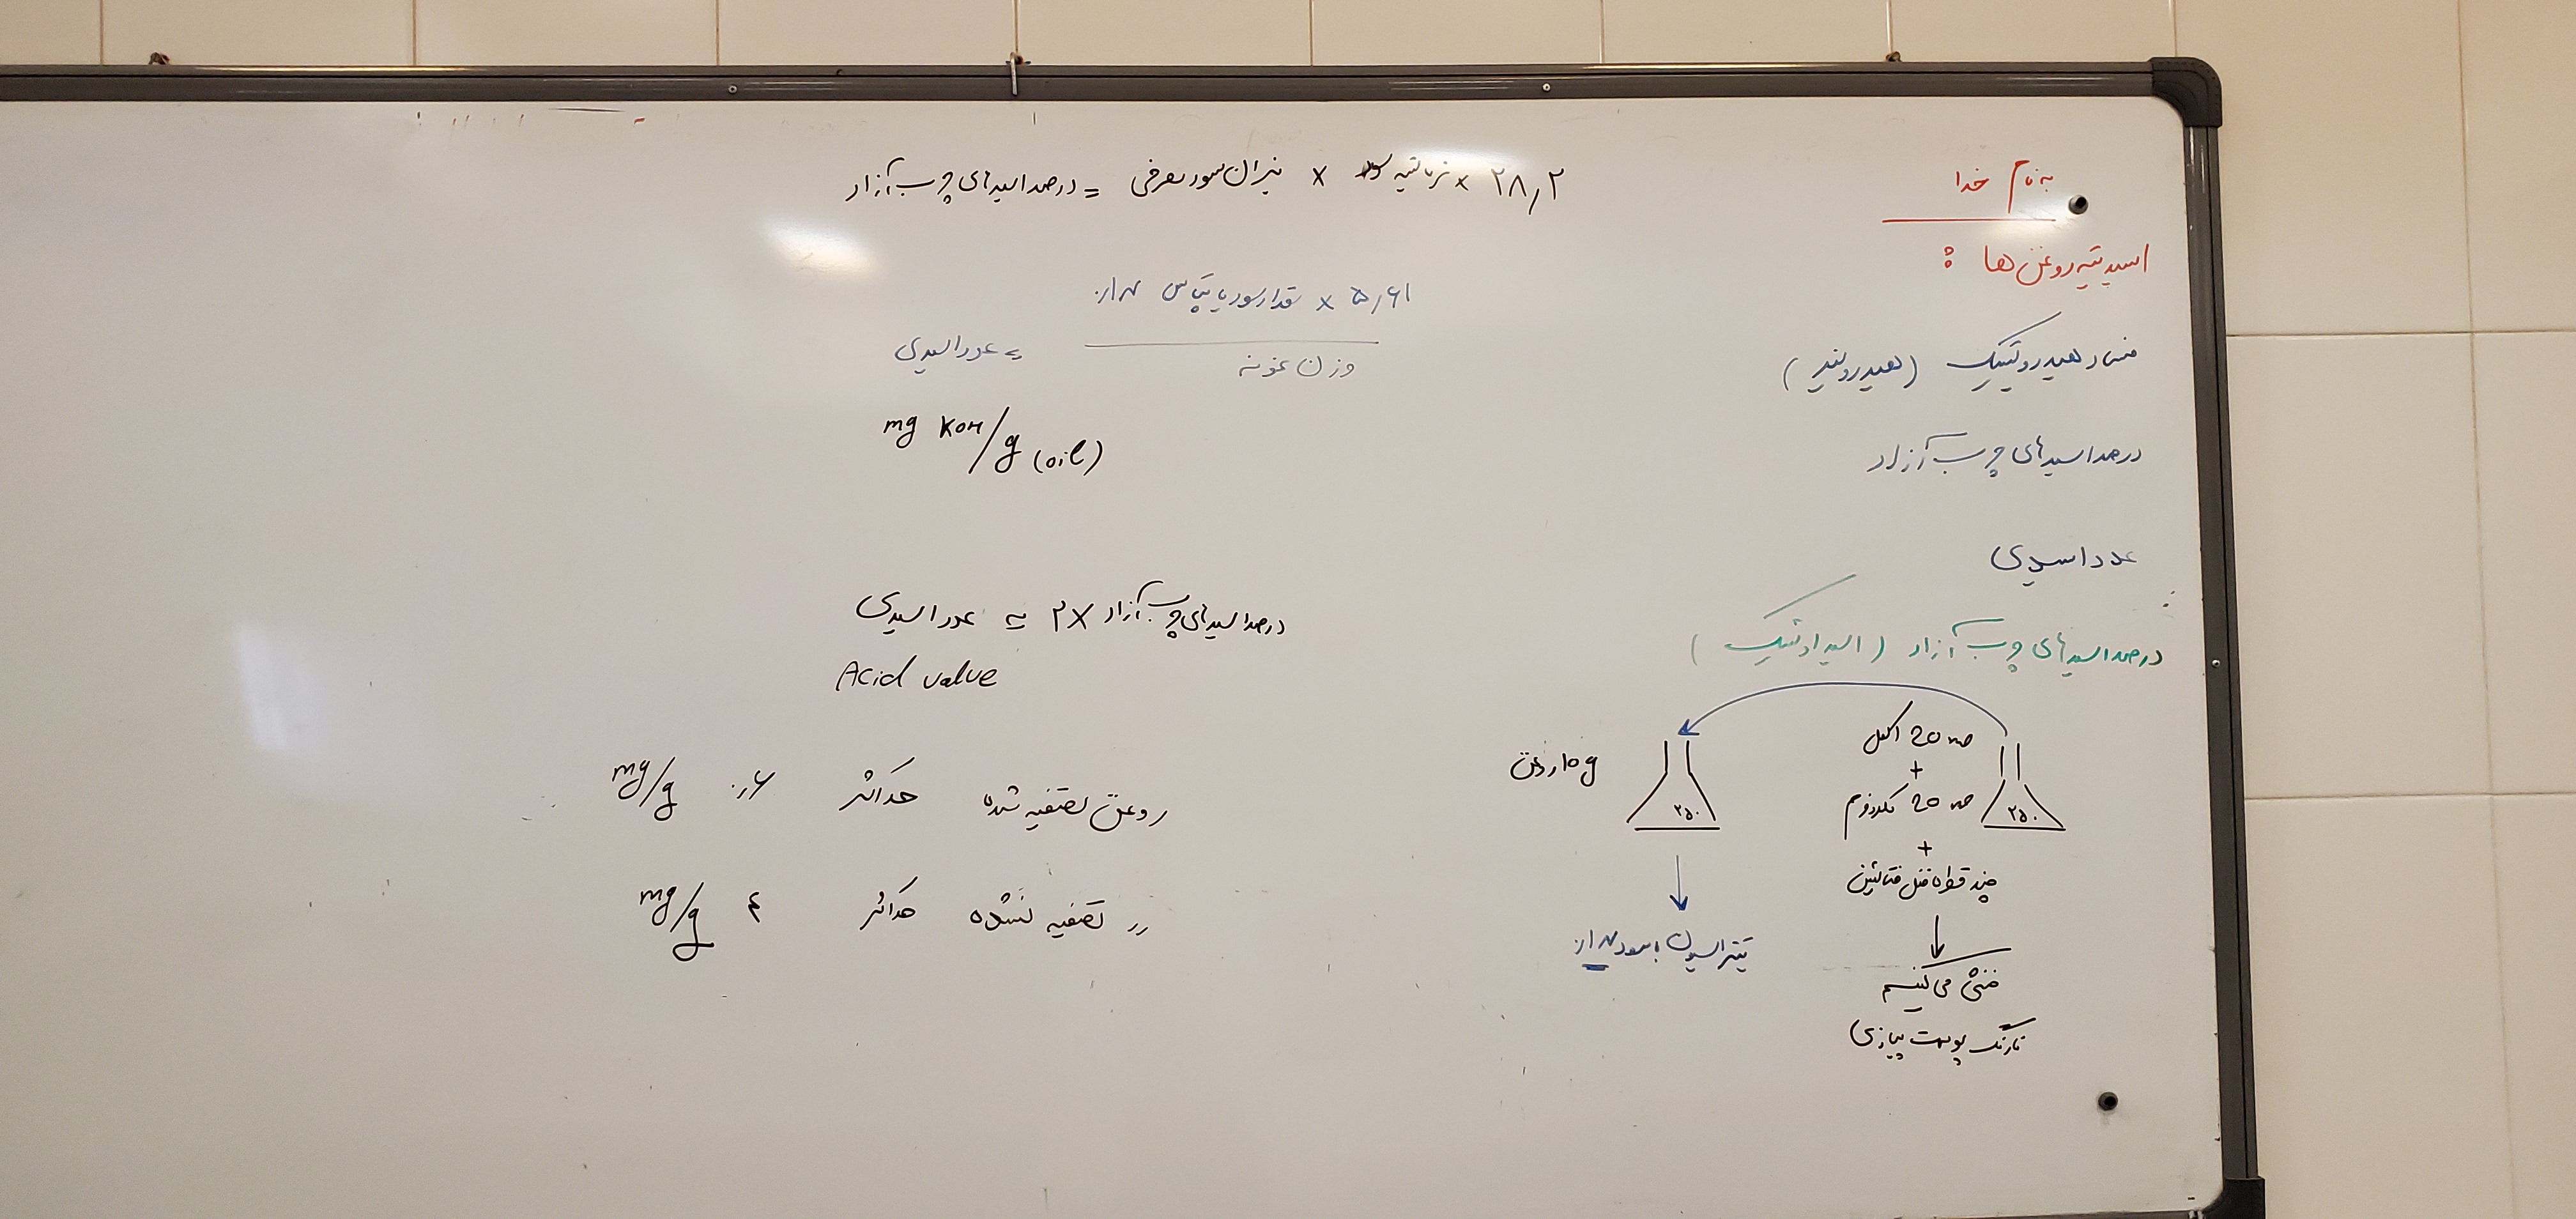 به نام خدا
اسیدیته روغن ها :
فساد هیدرولیتیک (هیدرولیز)
درصد اسیدهای چرب آزاد
عدد اسیدی
درصد اسیدهای چرب آزاد (اسید اولئیک)
۲۵۰
20 الکل
+
20 کلروفرم
+
چند قطره فنل فتالئین
خنثی می کنیم
تا رنگ پوست پیازی
10 g روغن
۲۵۰
تیتراسیون با سود ۰/۱ N
۲۸٫۲ × نرمالیته سود × میزان سود مصرفی = درصد اسیدهای چرب آزاد
۵٫۶۱ × مقدار سود یا پتاس ۰/۱ N
وزن نمونه
= عدد اسیدی
mg KOH/g (oil)
درصد اسیدهای چرب آزاد ×۲ = عدد اسیدی
Acid value
روغن تصفیه شده حداکثر ۰٫۶ mg/g
〃 تصفیه نشده حداکثر ۴ mg/g